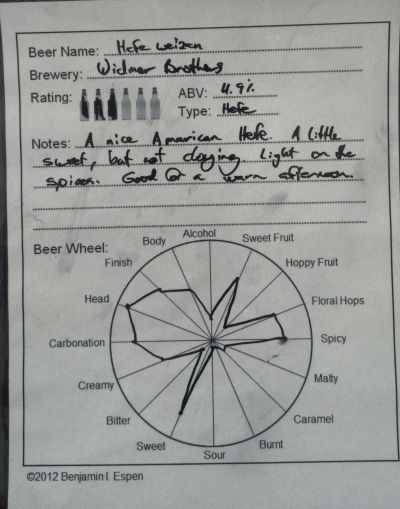 Beer Name: Hefeweizen
Brewery: Widmer Brothers
Rating:
ABV: 4.9%
Type: Hefe
Notes: A nice American Hefe. A little
sweet, but not cloying. Light on the
spices. Good for a warm afternoon.
Beer Wheel:
Alcohol
Body
Sweet Fruit
Finish
Hoppy Fruit
Head
Floral Hops
Carbonation
Spicy
Creamy
Malty
Bitter
Caramel
Sweet
Burnt
Sour
©2012 Benjamin I. Espen